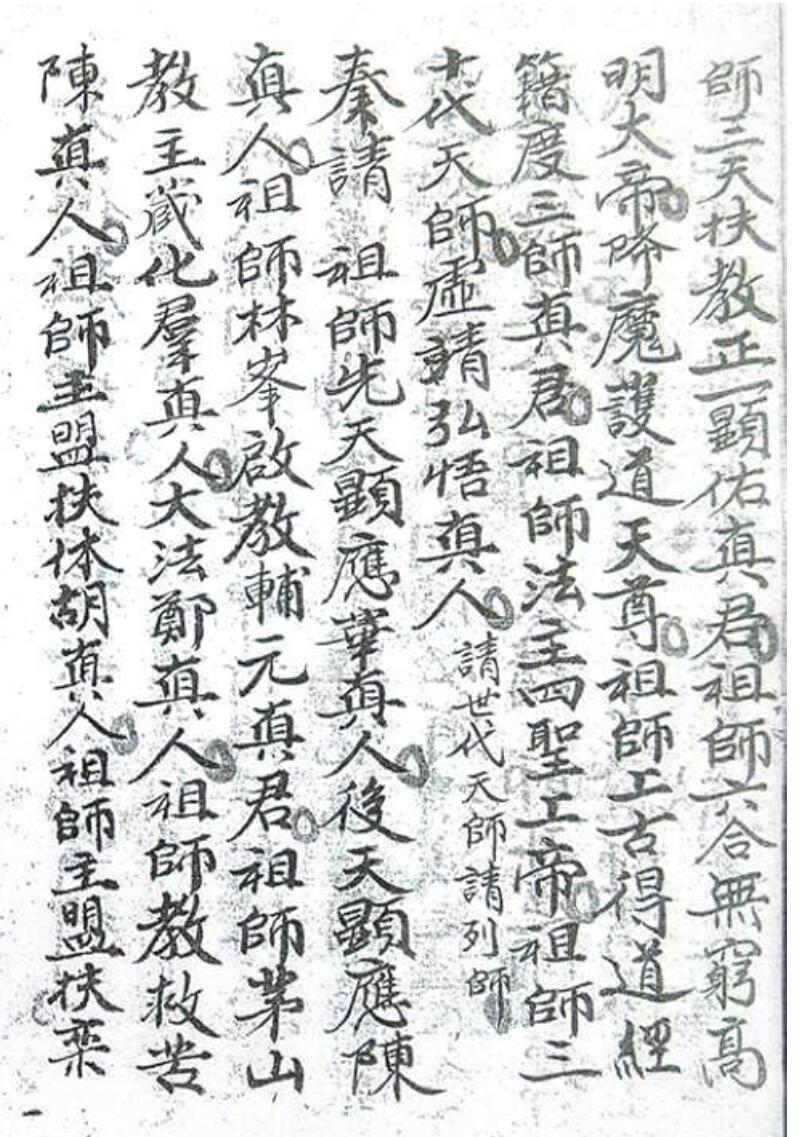 師三天扶教正一顯佑真君祖師六合無窮高
明大帝降魔護道天尊祖師上古得道經
籍度三師真君祖師法主四聖上帝祖師三
十代天師虛靖弘悟真人請世代天師請列師
奏請祖師先天顯應葉真人後天顯應陳
真人祖師林峯啟教輔元真君祖師茅山
教主葳化羣真人大法鄭真人祖師教救苦
陳真人祖師主盟扶休胡真人祖師主盟扶栾